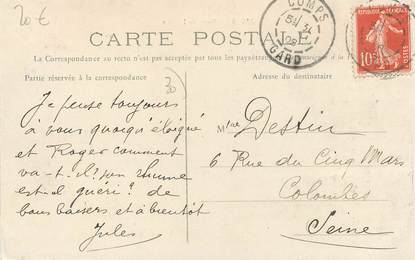 20€
COMPS
GARD
CARTE POSTALE
La Correspondance au recto n'est pas acceptée par tous les pays étrangers
Partie réservée à la correspondance
Adresse du destinataire
30
Je pense toujours
à vous quoiqu'éloigné
et Roger comment
va-t-il? son rhume
est-il guéri? de
bons baisers et à bientôt
Jules
Mme Destin
6 Rue du Cinq Mars
Colombes
Seine
10c
POSTES